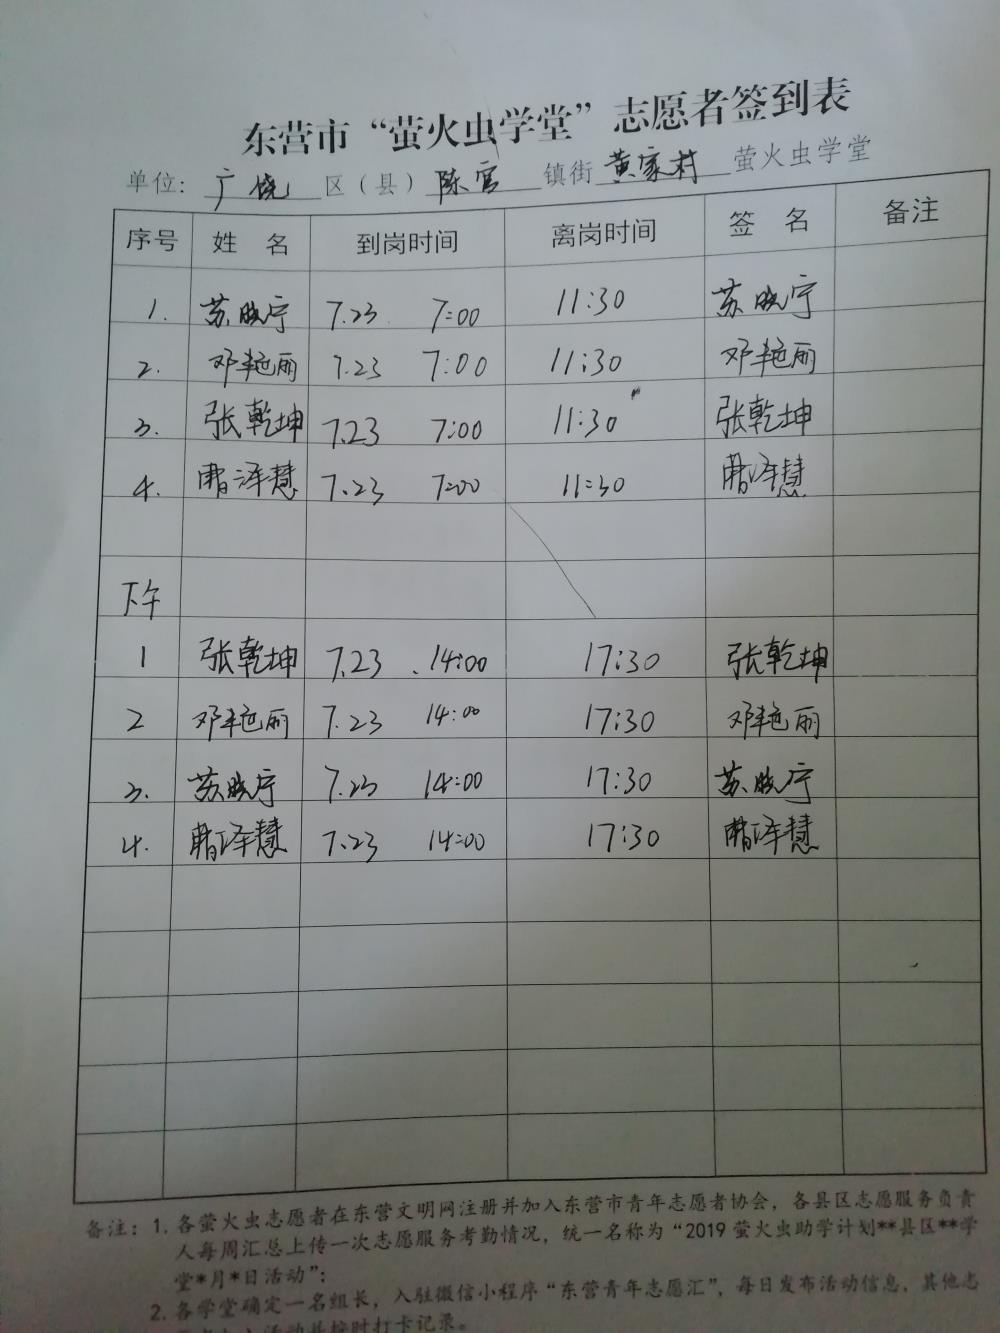 东营市“萤火虫学堂”志愿者签到表
单位：广饶区（县）陈官镇街黄家村萤火虫学堂
序号 姓 名 到岗时间 离岗时间 签 名 备注
1. 苏晓宁 7.23 7:00 11:30 苏晓宁
2. 邓艳丽 7.23 7:00 11:30 邓艳丽
3. 张乾坤 7.23 7:00 11:30 张乾坤
4. 曹泽慧 7.23 7:00 11:30 曹泽慧
下午
1 张乾坤 7.23 14:00 17:30 张乾坤
2 邓艳丽 7.23 14:00 17:30 邓艳丽
3. 苏晓宁 7.23 14:00 17:30 苏晓宁
4. 曹泽慧 7.23 14:00 17:30 曹泽慧
备注：1. 各萤火虫志愿者在东营文明网注册并加入东营市青年志愿者协会，各县区志愿服务负责
人每周汇总上传一次志愿服务考勤情况，统一名称为“2019萤火虫助学计划**县区**学
堂*月*日活动”；
2. 各学堂确定一名组长，入驻微信小程序“东营青年志愿汇”，每日发布活动信息，其他志
活动并按时打卡记录。